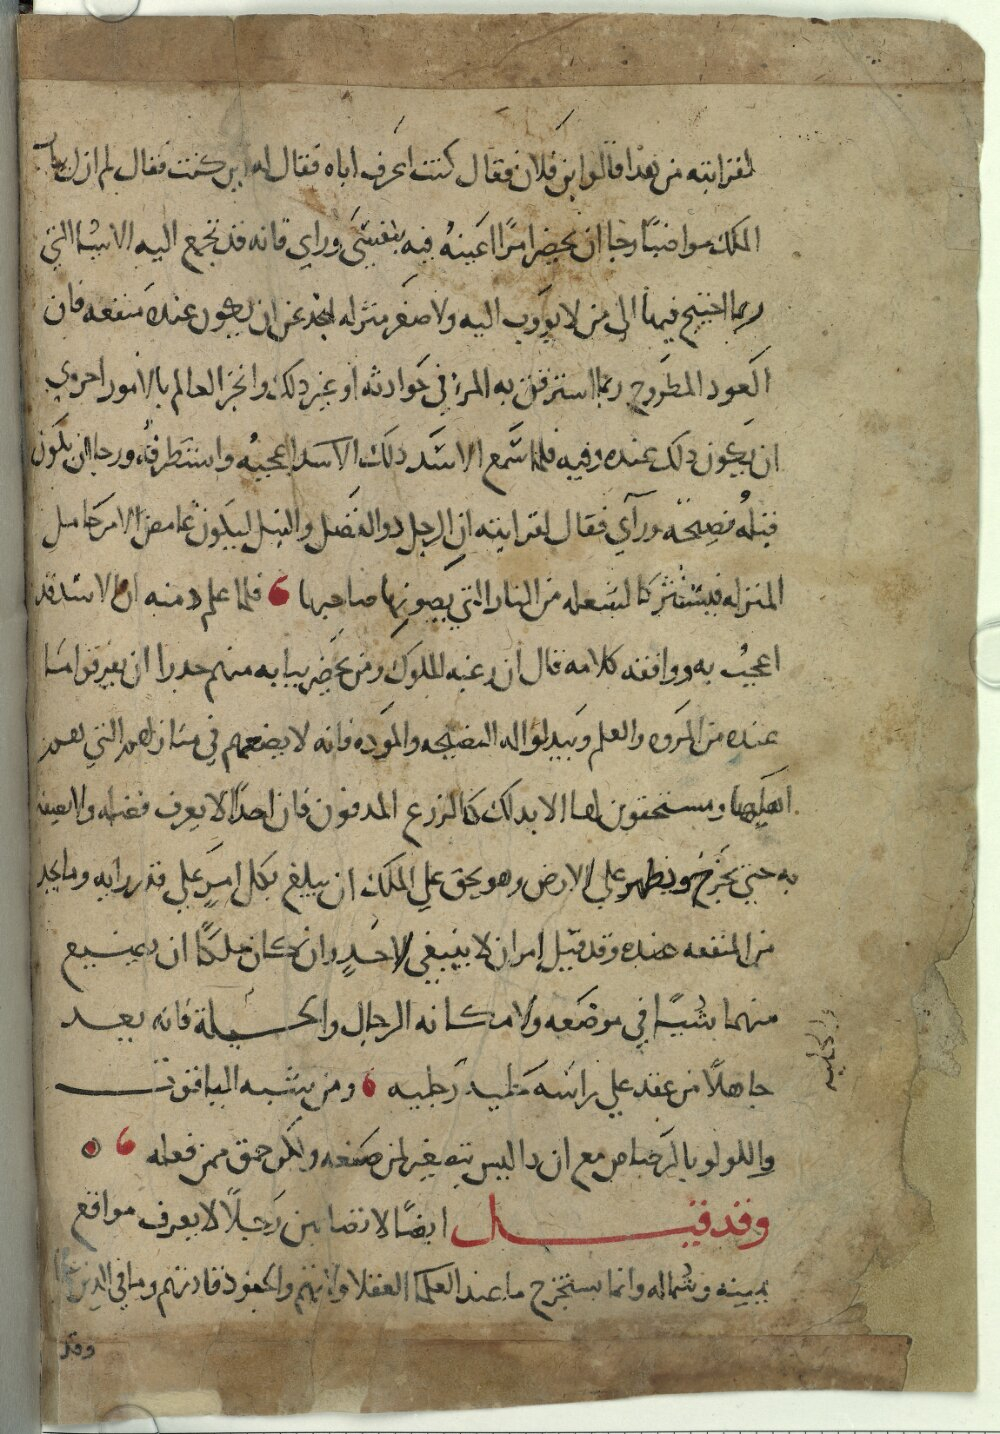 لقرابته من هذا قالوا ابن فلان فقال كنت اعرف اباه فقال له اين كنت فقال لم ازل بباب
الملك مواضبًا رجا ان يحضر امرًا اعينهُ فيه بنفسي وراي فانه قد تجمع اليه الاشيا التي
ربما احتيج فيها الى من لا يووب اليه ولا صغر منزله احد عن ان يكون عنده منفعه فان
العود المطروح ربما استرفق به المر في حوادثه او غير ذلك وانجز العالم بالامور احري
ان يكون ذلك عنده وفيه فلما سمع الاسد ذلك الاسد اعجبهُ واستظرفهُ ورجا ان يكون
قبلهُ نصيحة وراي فقال لقرابته ان الرجل ذو الفضل والنبل ليكون غامض الامر خامل
المنزله فينتشر كالشعله من النار التي يصونها صاحبها فلما علم دمنه ان الاسد قد
اعجب به ووافقه كلامه قال ان رعيه الملوك ومن يحضر ببابه منهم جديرا ان يعرفوا ما
عنده من المروه والعلم ويبدلوا له النصيحه والموده فانه لا يضعهم في منازلهم التي هم
اهلها ومستحقون لها الا بذلك كالزرع المدفون فان احدًا لا يعرف فضله ولا
به حتى يخرج ويظهر على الارض وهو يحق على الملك ان يبلغ بكل امرٍ على قدر رايه وما يجد
من المنفعه عنده وقد قيل امران لا ينبغي لاحدٍ وان كان ملكًا ان يضيع
منهما شيًا في موضعه ولا مكانه الرجال والحـيلة فانه يعـد
جاهلًا من عقد علي راسه حليه رجليه ومن يشبه الياقوت
واللولو بالرصاص مع ان ذا ليس بتصغير لمن صنعه ولكن حمق ممن فعله
وقد قيـل ايضًا لا تصاحبن رجلًا لا يعرف مواقع
يمينه وشماله وانما يستخرج ما عند العلما العقلا ولاتهم والجنود قادتهم وما في الدين
وقد
والحليه